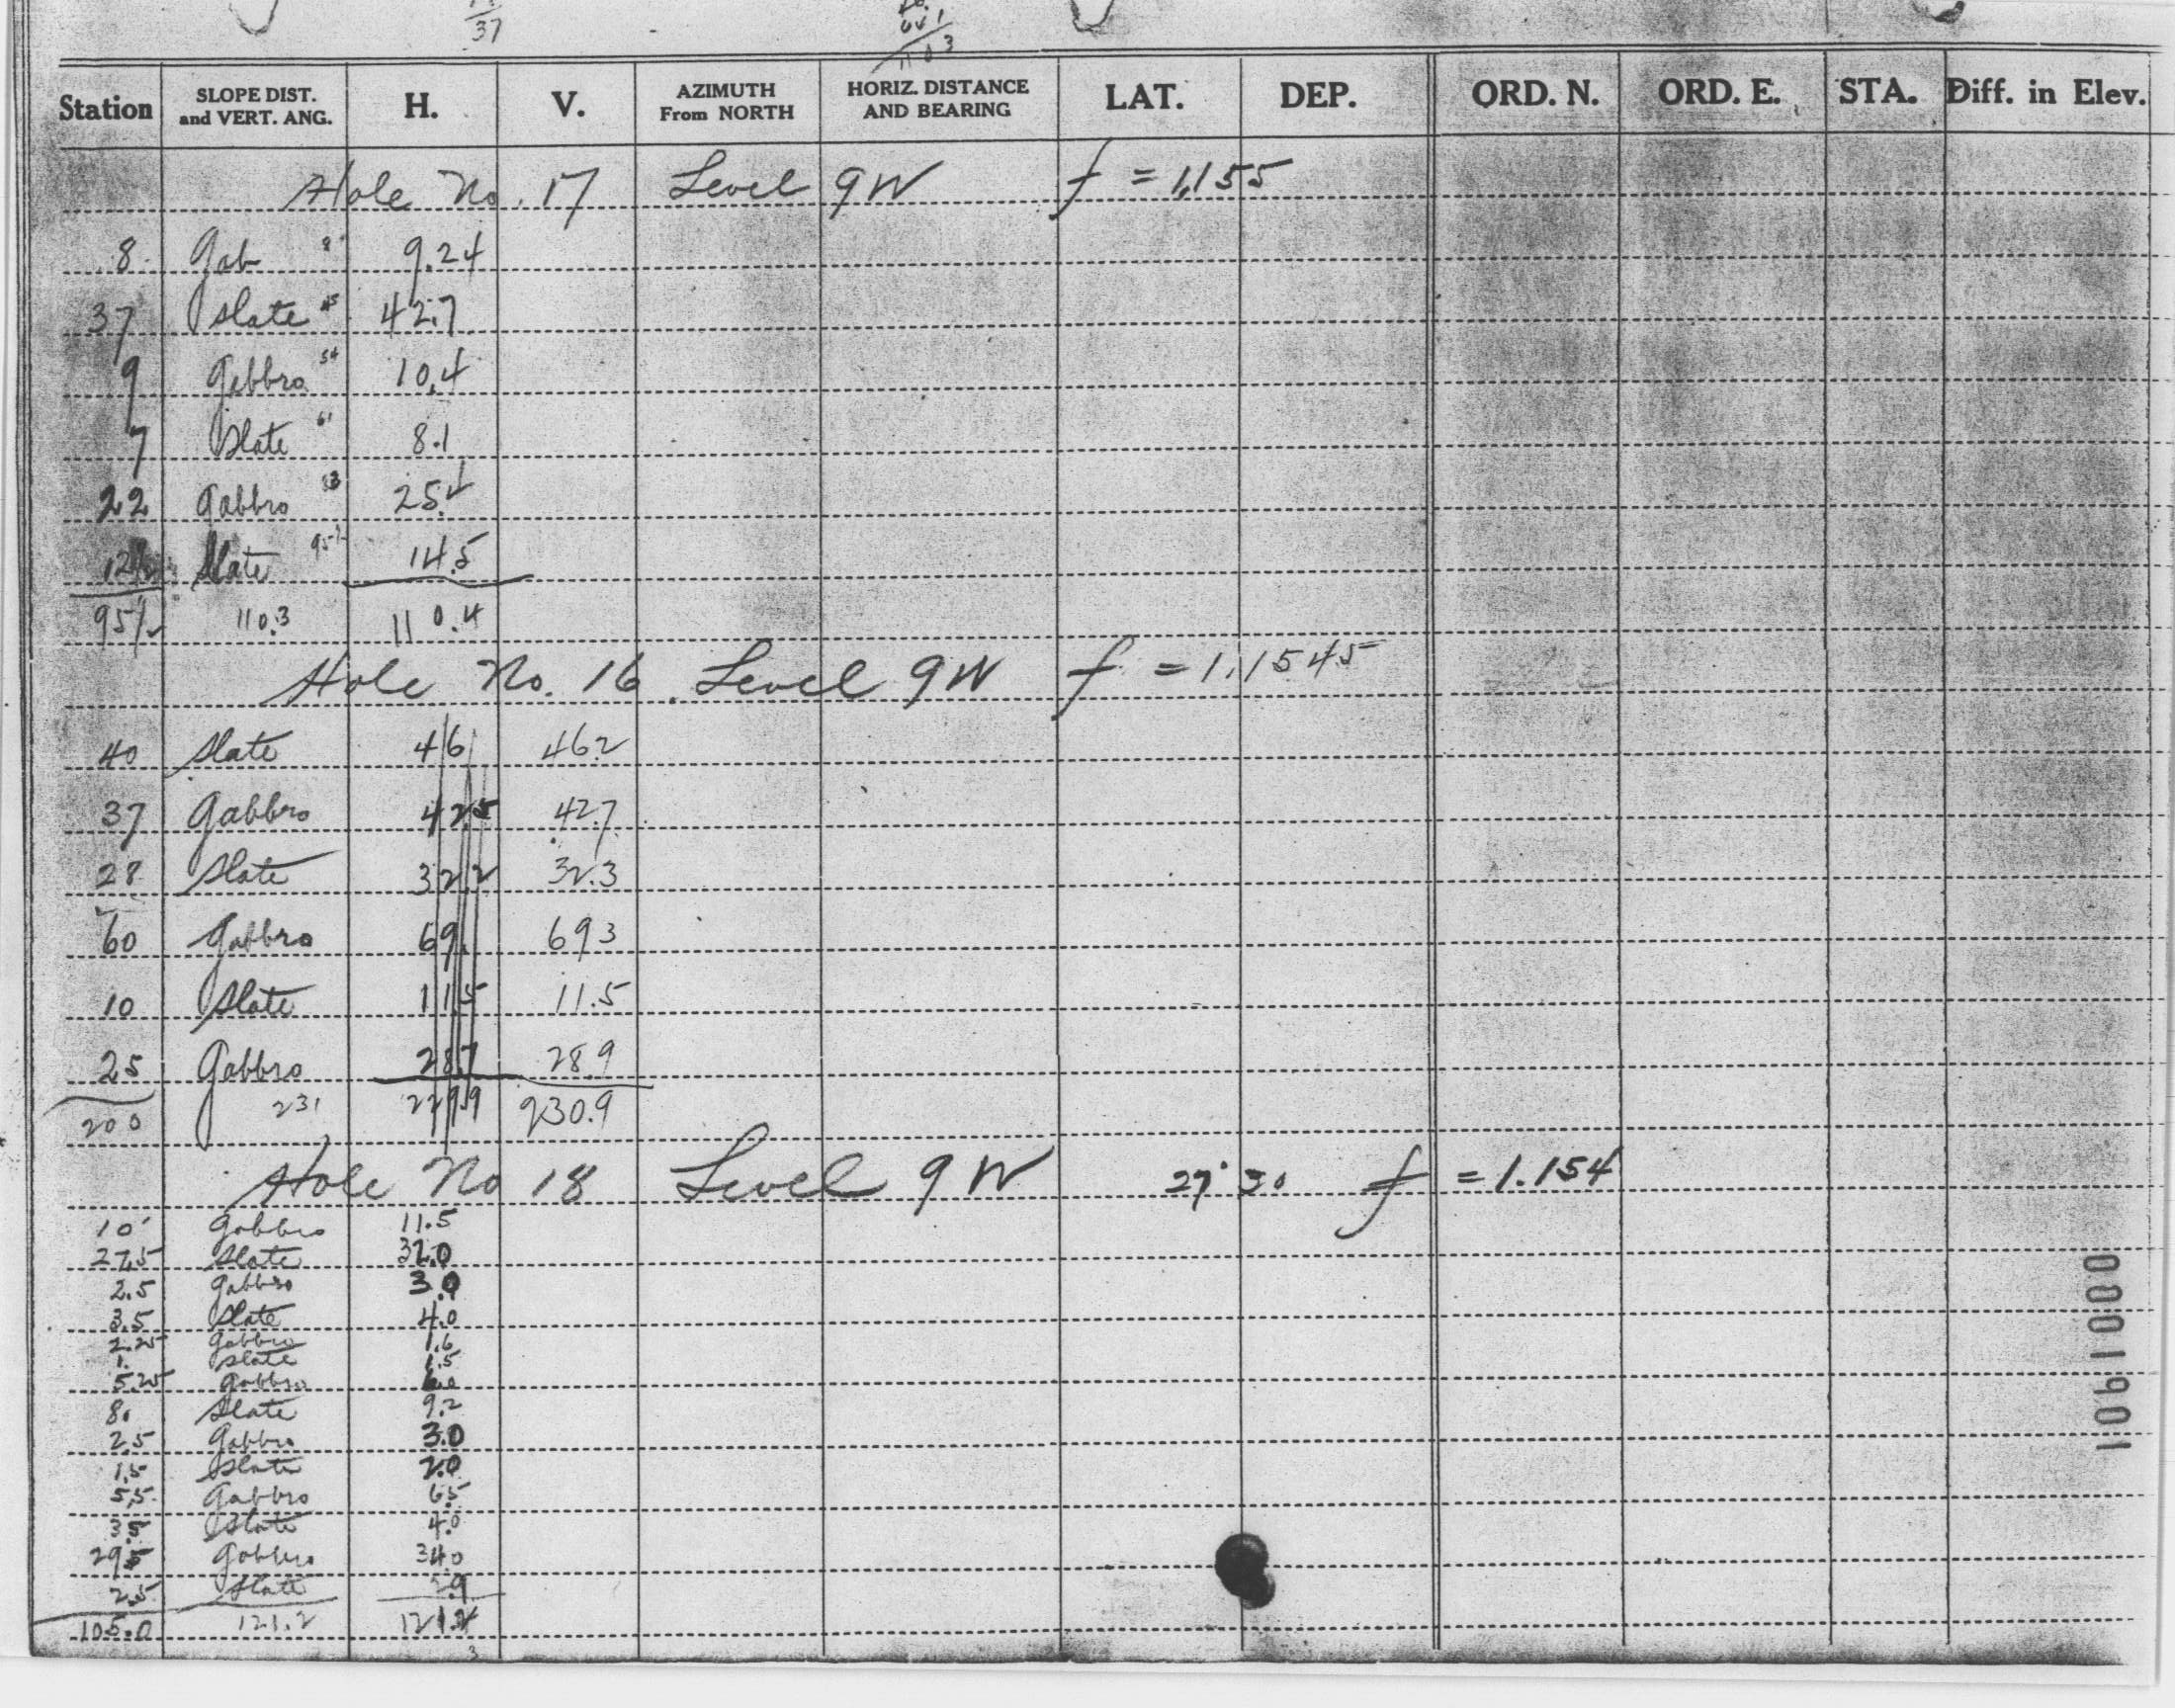 37
1103
Station SLOPE DIST. and VERT. ANG. H. V. AZIMUTH From NORTH HORIZ. DISTANCE AND BEARING LAT. DEP. ORD. N. ORD. E. STA. Diff. in Elev.
Hole No. 17 Level 9W f = 1.155
8 Gab 8 9.24
37 Slate 45 42.7
9 Gabbro 54 10.4
7 Slate 61 8.1
22 Gabbro 83 25.4
12½ Slate 95½ 14.5
95½ 110.3 110.4
Hole No. 16 Level 9W f = 1.1545
40 Slate 46 46.2
37 Gabbro 42.5 42.7
28 Slate 32.2 32.3
60 Gabbro 69. 69.3
10 Slate 11.5 11.5
25 Gabbro 28.7 28.9
200 231 229.9 230.9
Hole No 18 Level 9W 27° 30 f = 1.154
10 Gabbro 11.5
27.5 Slate 32.0
2.5 Gabbro 3.0
3.5 Slate 4.0
2.25 Gabbro 1.6
1. Slate 1.5
5.25 Gabbro 6.0
8. Slate 9.2
2.5 Gabbro 3.0
1.5 Slate 2.0
5.5 Gabbro 6.5
3.5 Slate 4.0
29.5 Gabbro 34.0
2.5 Slate 2.9
105.0 121.2 121.2
3
0001901